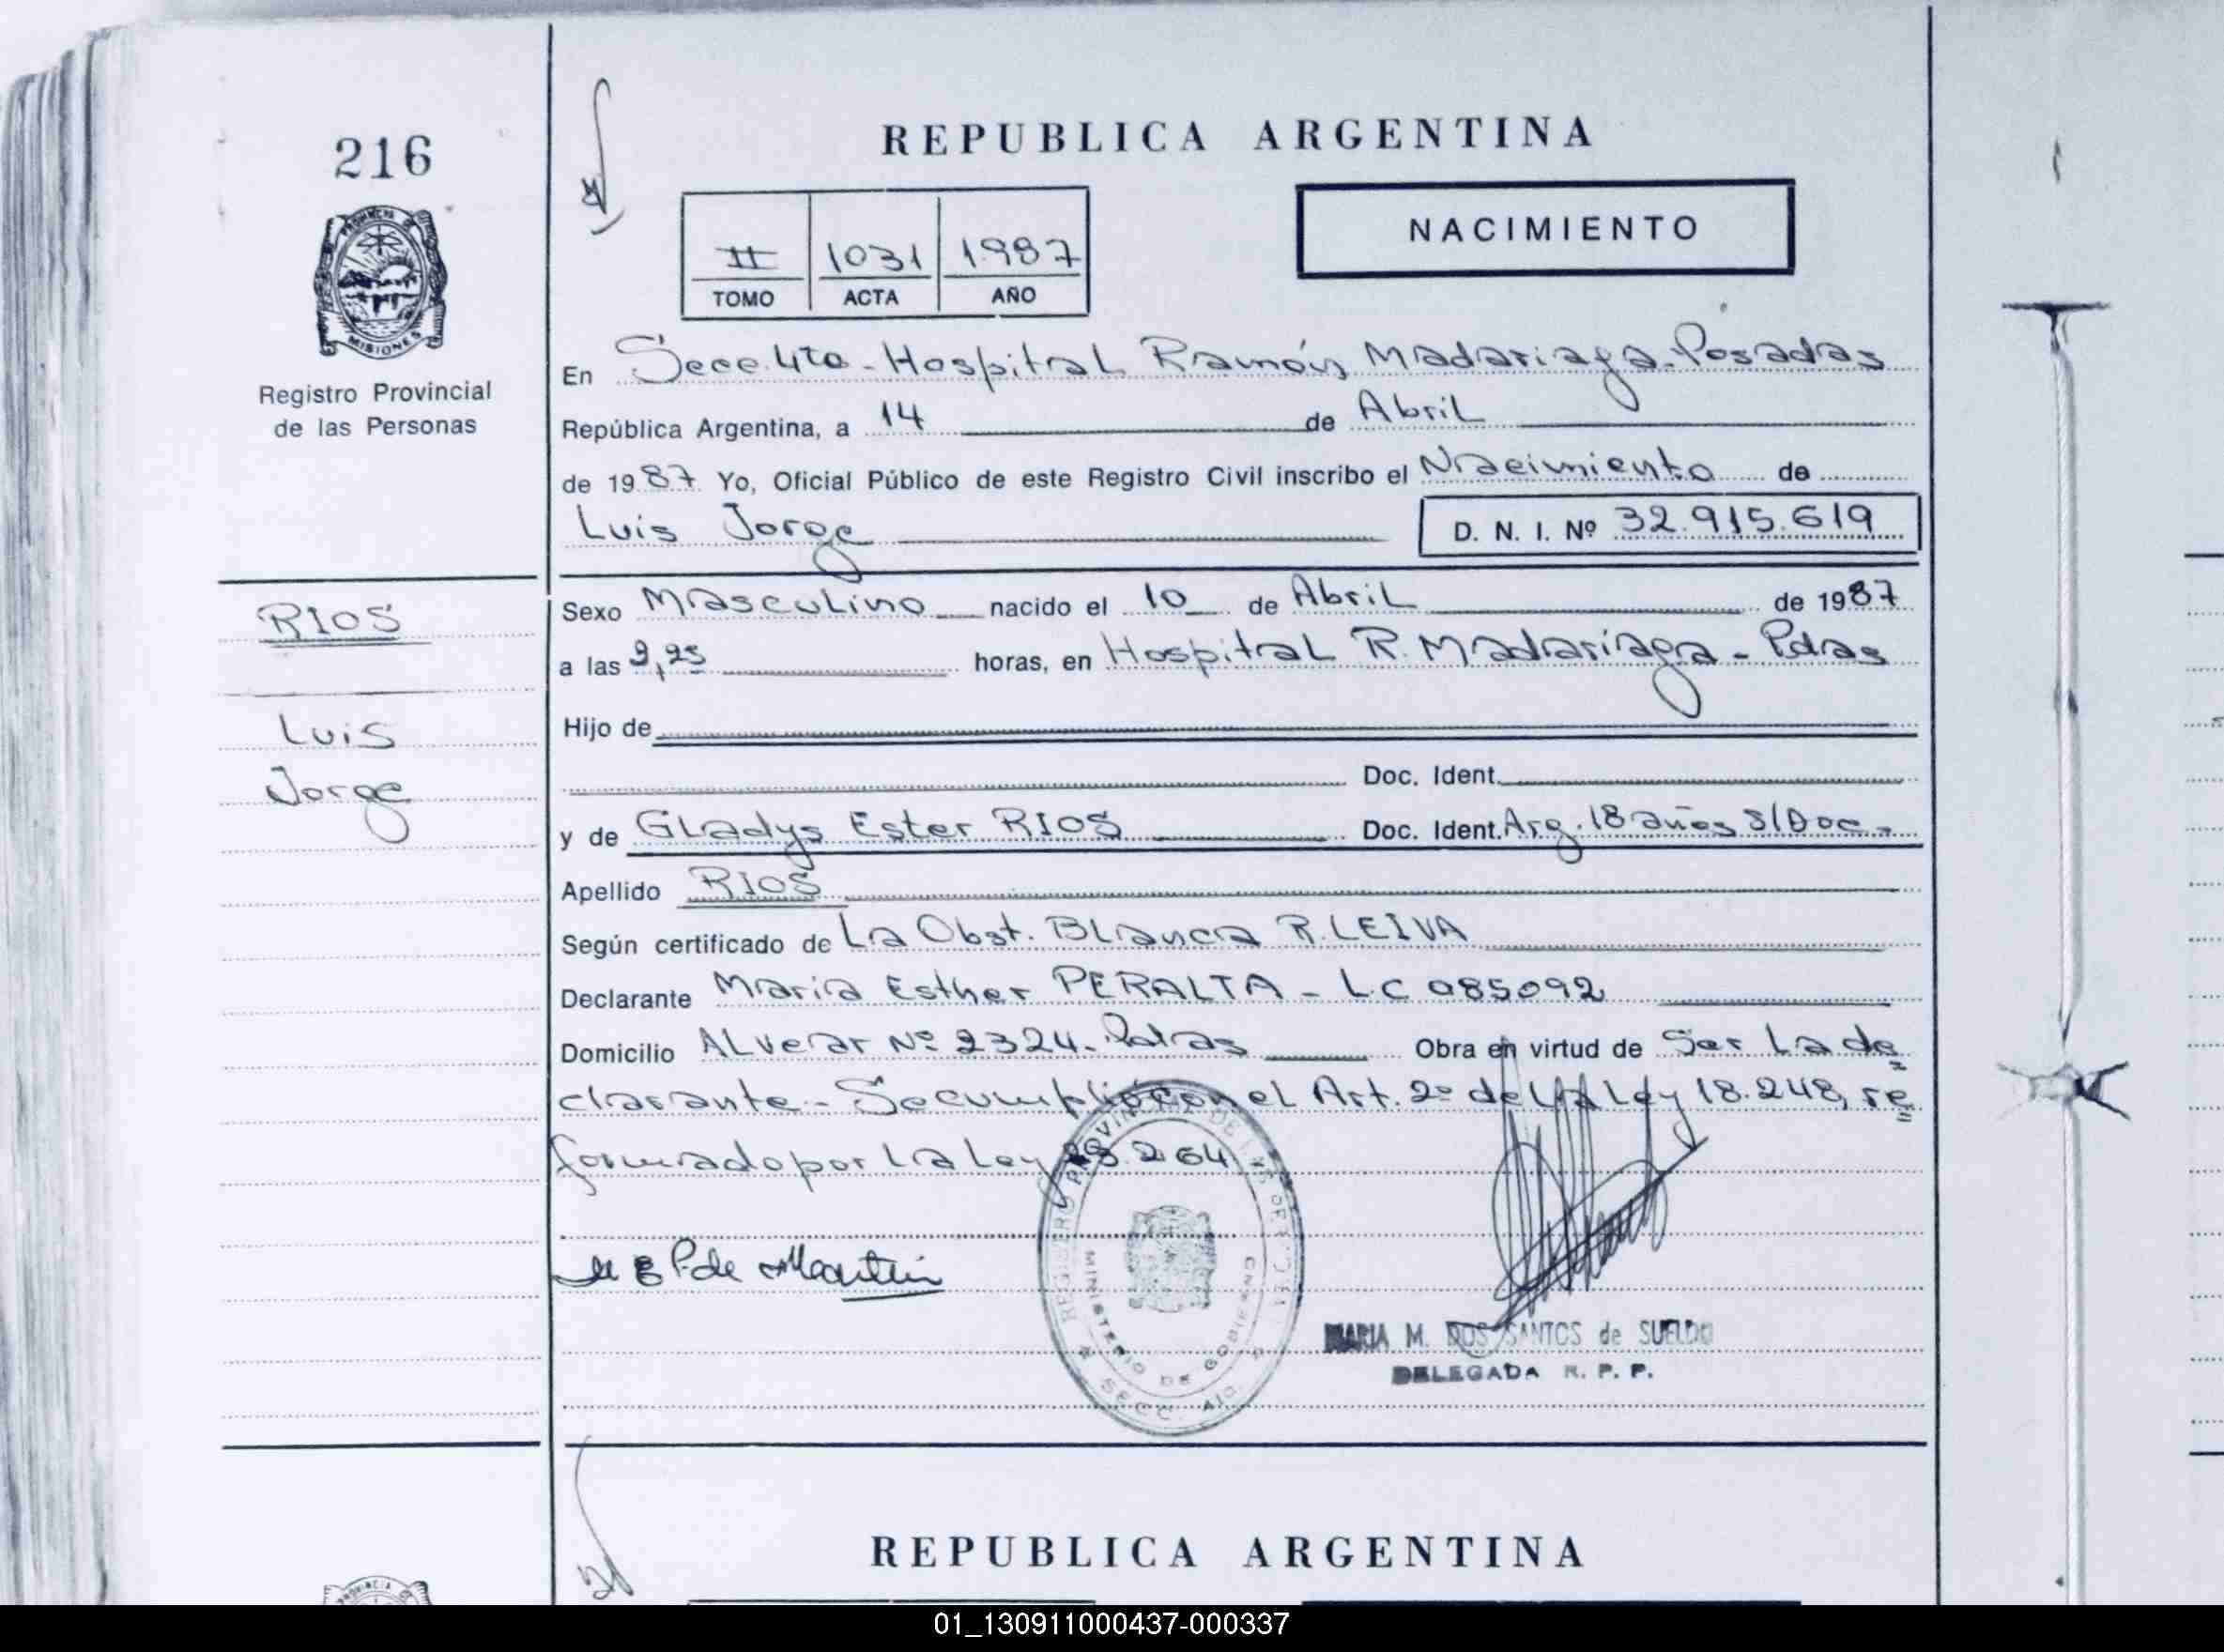 216
PROVINCIA DE
MISIONES
Registro Provincial
de las Personas
RIOS
Luis
Jorge
REPUBLICA ARGENTINA
II 1031 1987
TOMO ACTA AÑO
NACIMIENTO
En Secc. 4ta - Hospital Ramón Madariaga - Posadas
República Argentina, a 14 de Abril
de 1987 Yo, Oficial Público de este Registro Civil inscribo el Nacimiento de
Luis Jorge D. N. I. Nº 32.915.619
Sexo Masculino nacido el 10 de Abril de 1987
a las 9,25 horas, en Hospital R. Madariaga - Pdas
Hijo de
Doc. Ident.
y de Gladys Ester RIOS Doc. Ident. Arg. 18 años S/Doc.-
Apellido RIOS
Según certificado de La Obst. Blanca R. LEIVA
Declarante Maria Esther PERALTA - L.C 085092
Domicilio ALvear Nº 2324 - Pdas Obra en virtud de Ser La de
clarante - Se cumplió con el Art. 2º de la Ley 18.248, re
formado por La Ley 23.264
M E P. de Martin
REGISTRO PROVINCIAL DE LAS PERSONAS
MINISTERIO DE GOBIERNO
SECC. 4ta.
MARIA M. DOS SANTOS de SUELDO
DELEGADA R. P. P.
REPUBLICA ARGENTINA
PROVINCIA
01_130911000437-000337